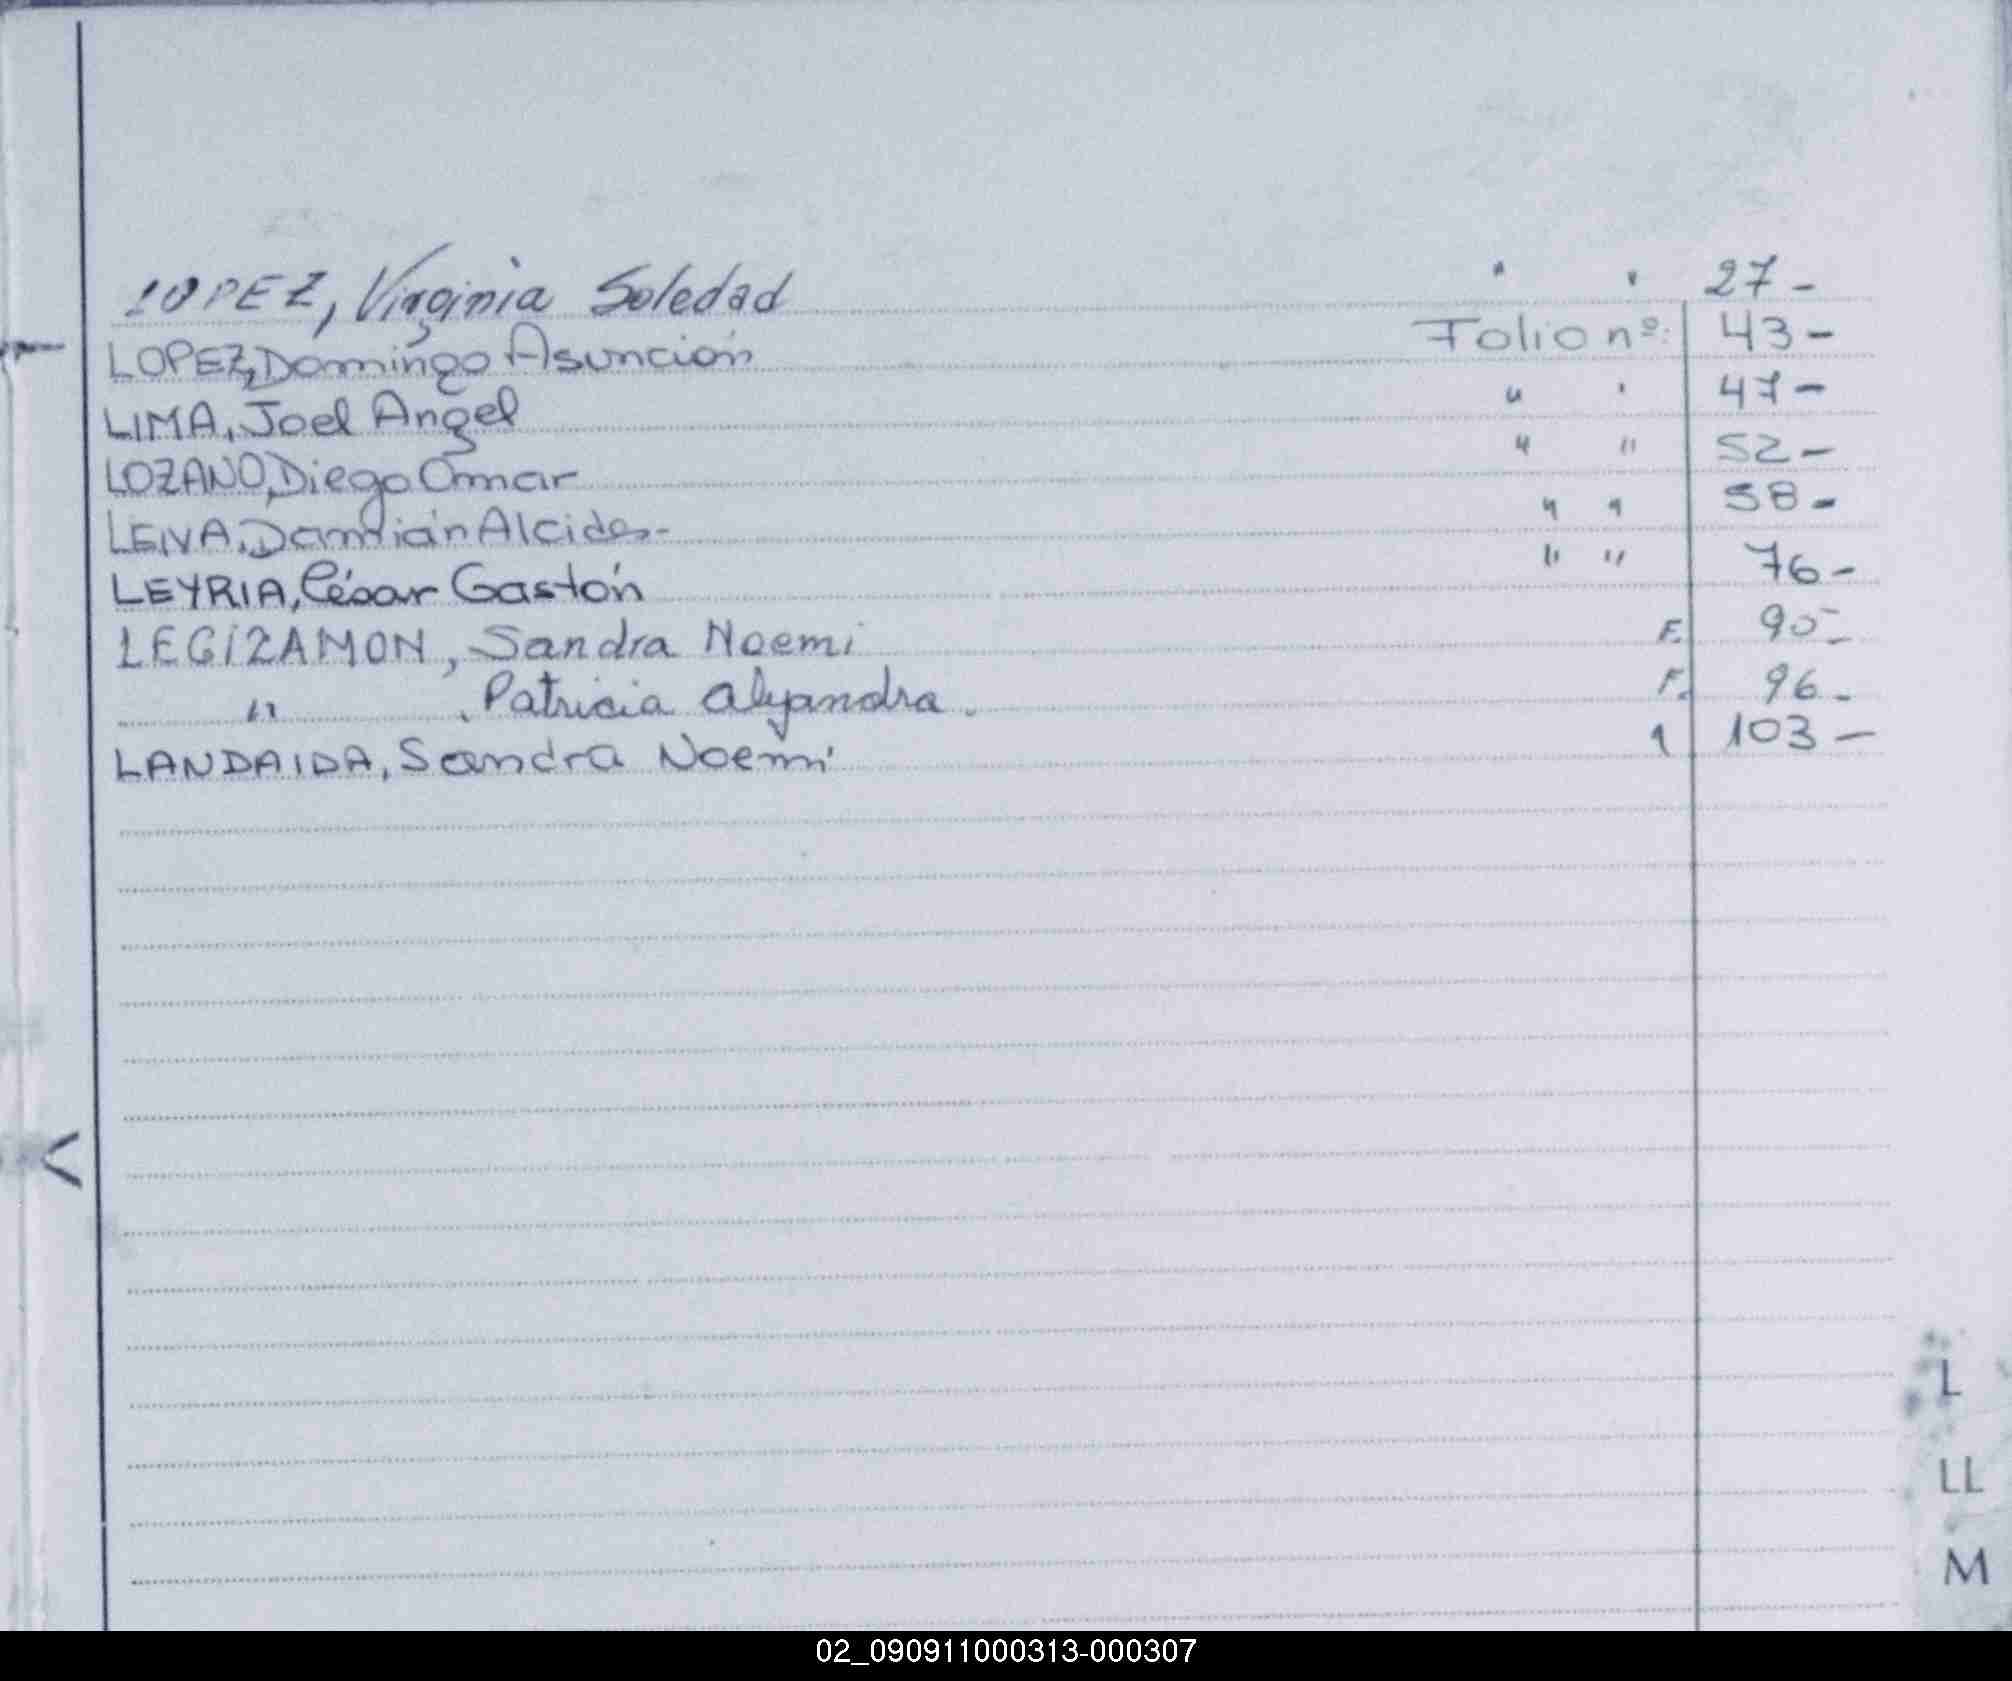 LOPEZ, Virginia Soledad " " 27-
LOPEZ, Domingo Asunción Folio nº: 43-
LIMA, Joel Angel " " 47-
LOZANO, Diego Omar " " 52-
LEIVA, Damián Alcides- " " 58-
LEYRIA, César Gastón " " 76-
LEGIZAMON, Sandra Noemi F. 90-
" , Patricia Alejandra. F. 96-
LANDAIDA, Sandra Noemi " 103-
L
LL
M
02_090911000313-000307